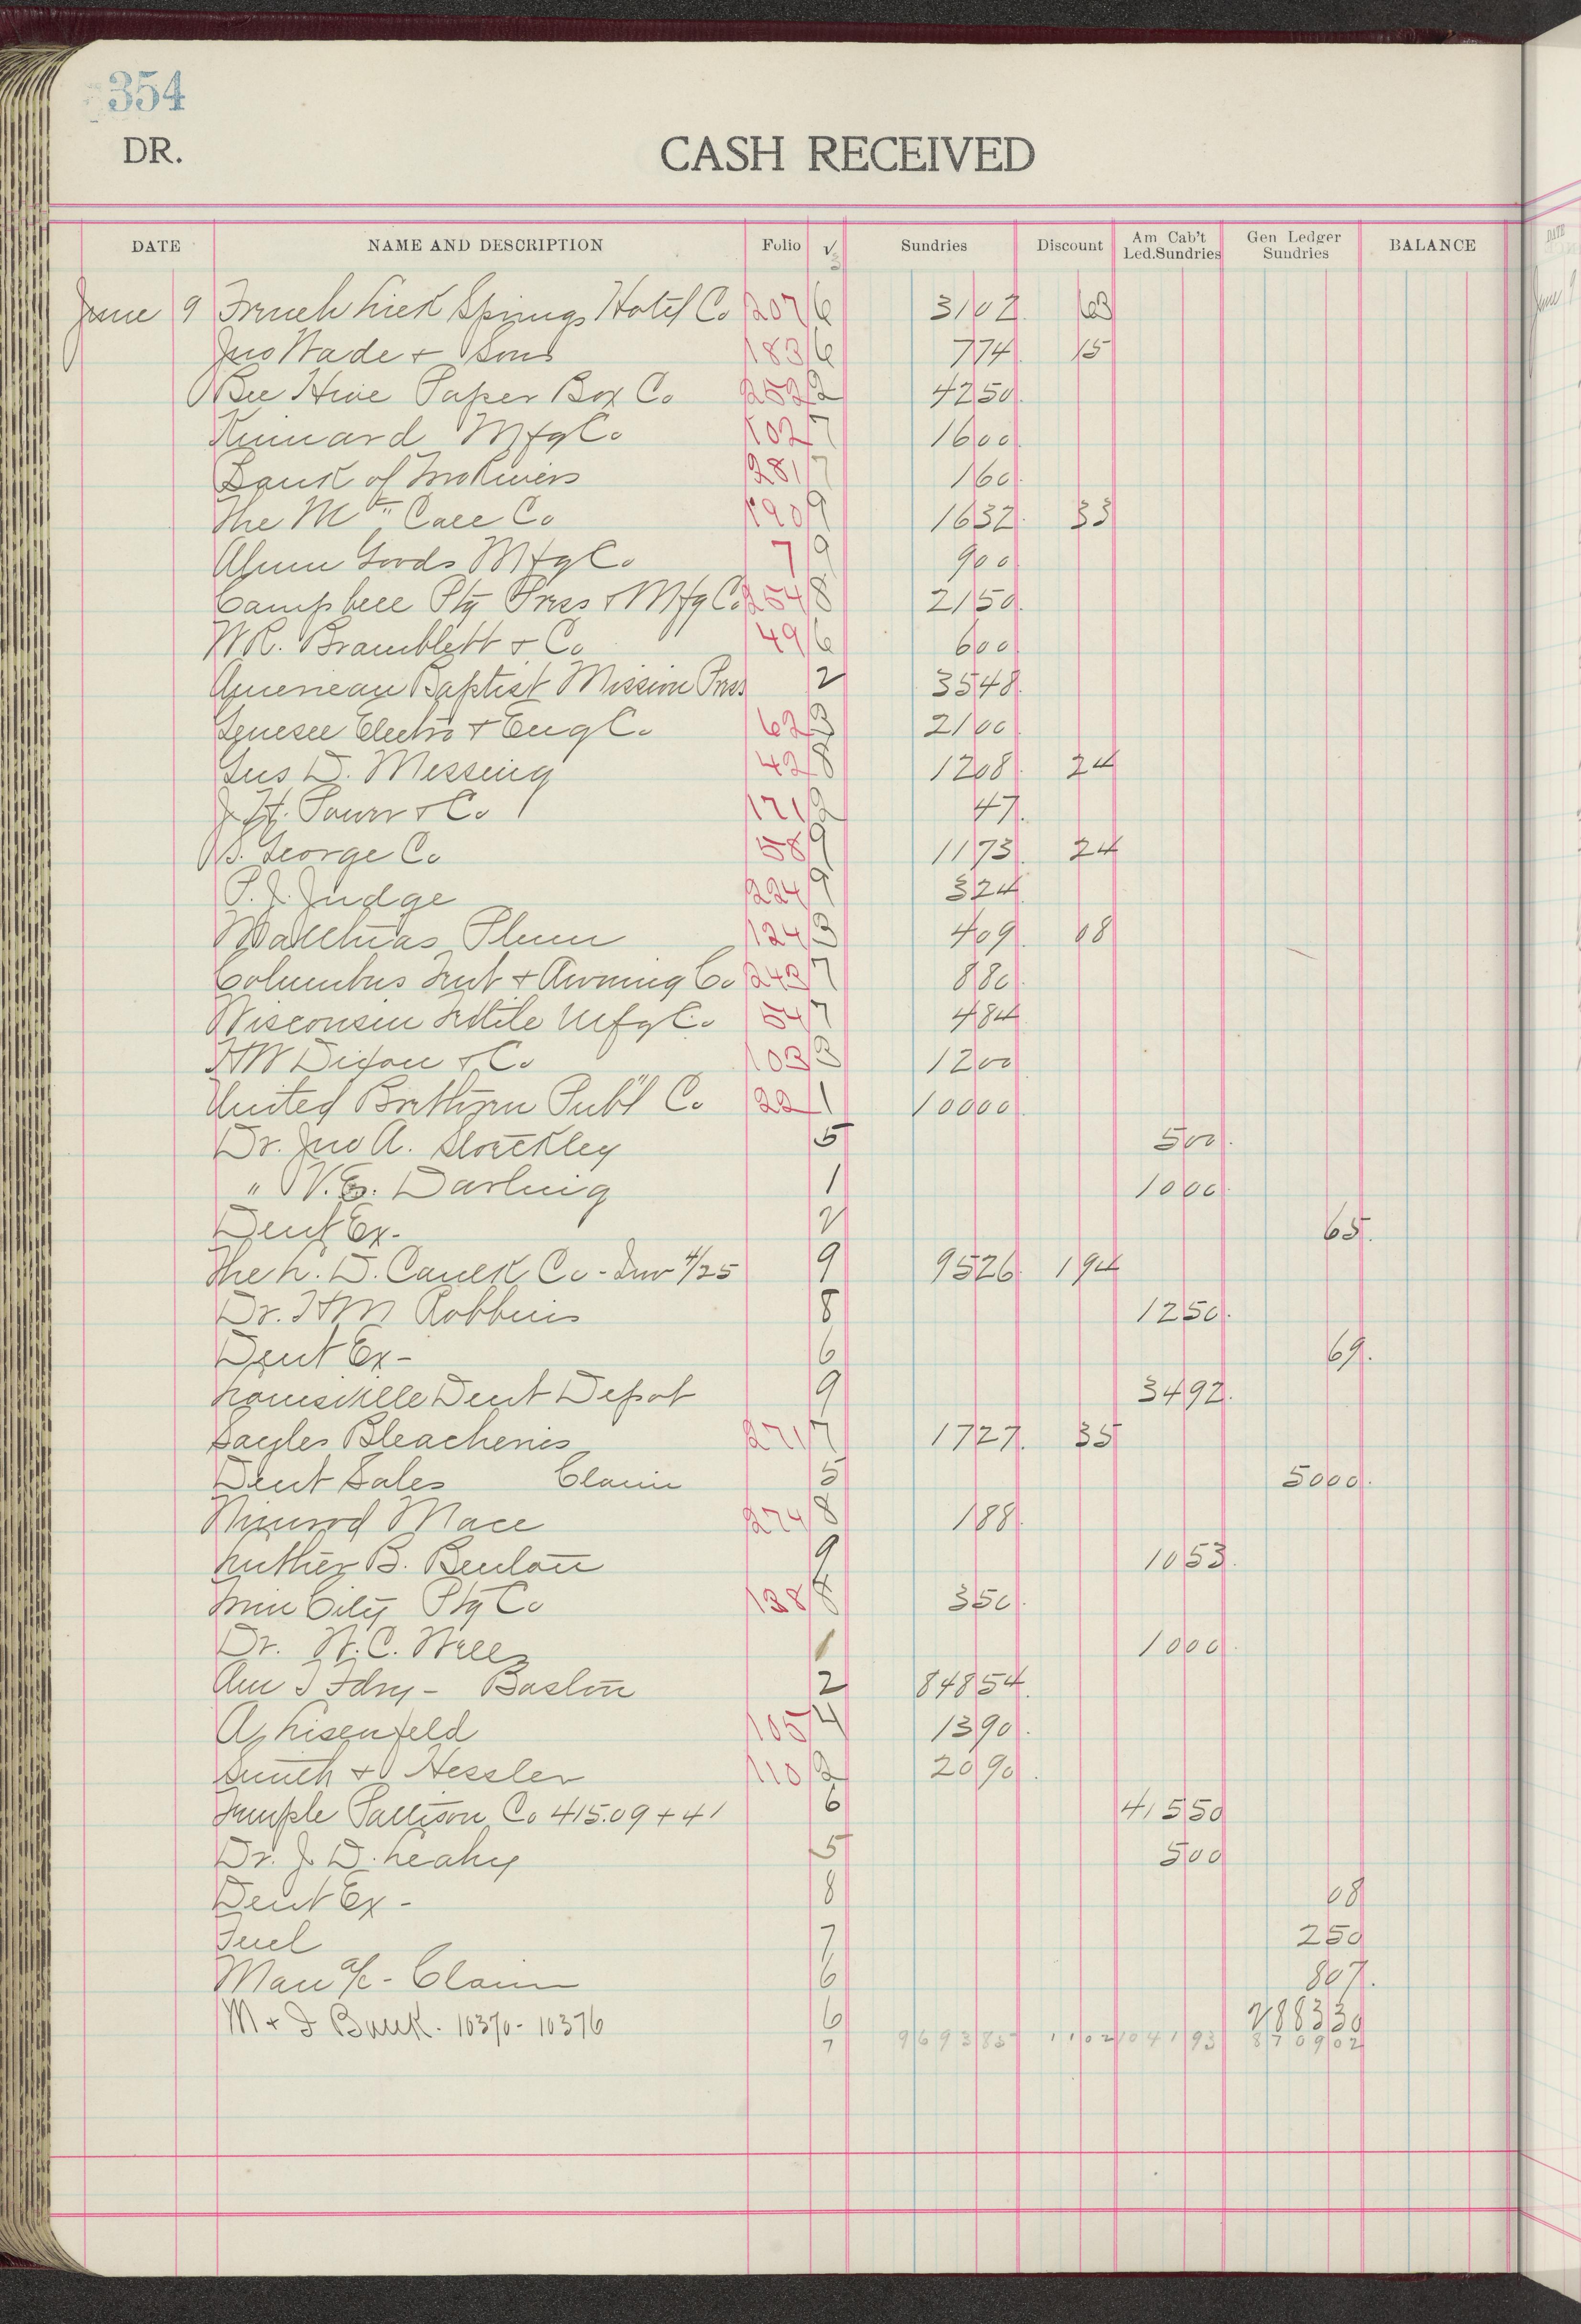 354
DR.
CASH RECEIVED
DATE NAME AND DESCRIPTION Folio √ Sundries Discount Am Cab't Led.Sundries Gen Ledger Sundries BALANCE
June 9 French Lick Springs Hotel Co 207 6 3102 63
Jno Wade & Sons 183 6 774 15
Bee Hive Paper Box Co 252 2 4250
Kinnard Mfg Co 102 7 1600
Bank of Two Rivers 281 7 160
The Call Co 190 9 1632 33
Alum Goods Mfg Co 7 9 900
Campbell Ptg Press & Mfg Co 254 8 2150
W.R. Bramblett & Co 49 6 600
American Baptist Mission Press 2 3548
Genesee Electro & Eng Co 62 3 2100
Gus D. Messing 42 8 1208 24
J.H. Power & Co 171 2 47
B. George Co 58 9 1173 24
P.J. Judge 224 9 324
Matthias Plum 124 3 409 08
Columbus Tent & Awning Co 243 7 880
Wisconsin Textile Mfg Co 54 7 484
HW Dixon & Co 103 3 1200
United Brethren Publ Co 22 1 10000
Dr. Jno A. Stoeckley 5 500
" V.E. Darling 1 1000
Dent Ex - 2 65
The L. D. Caulk Co - Inv 4/25 9 9526 194
Dr. HM Robbins 8 1250
Dent Ex - 6 69
Louisville Dent Depot 9 3492
Sayles Bleacheries 271 7 1727 35
Dent Sales Claim 5 5000
Nimrod Mace 274 8 188
Luther B. Benton 9 1053
Twin City Ptg Co 138 8 350
Dr. W.C. 1 1000
Am T Fdry - Boston 2 84854
A Lisenfeld 105 4 1390
Smith & Hessler 110 2 2090
Temple Pattison Co 415.09 + 41 6 41550
Dr. J. D. Leahy 5 500
Dent Ex - 8 08
Fuel 7 250
Man a/c - Claim 6 807
M & J Bank - 10370 - 10376 6 288330
7 969385 1102 104193 870902